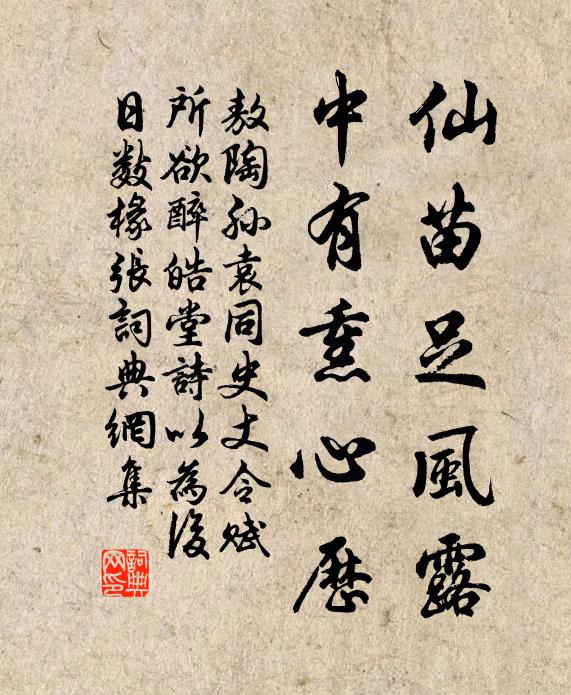 仙苗足風露
中有熏心歷
敖陶孫袁同史丈令賦
所欲醉皓堂詩以為後
日數椽張詞典網集
詞典网印